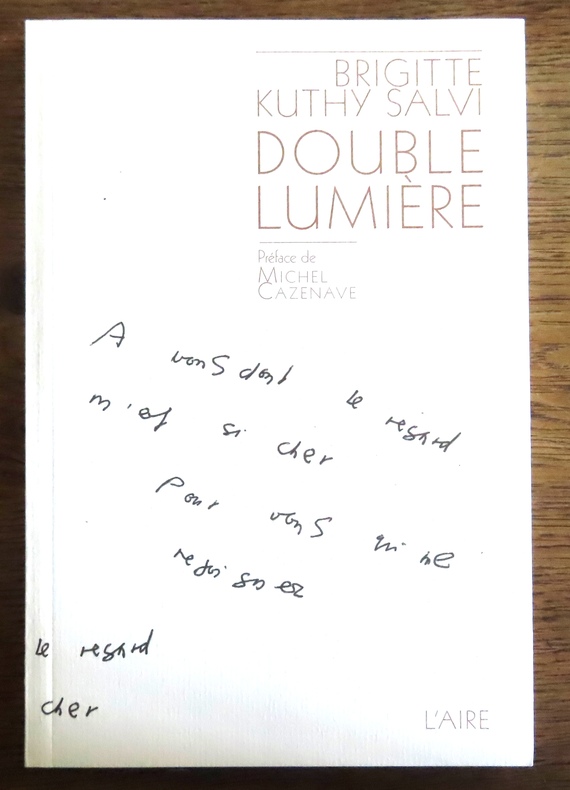 BRIGITTE
KUTHY SALVI
DOUBLE
LUMIÈRE
Préface de
MICHEL
CAZENAVE
A vous dont le regard
m'est si cher
Pour vous qui me
rejoignez
le regard
cher
L'AIRE